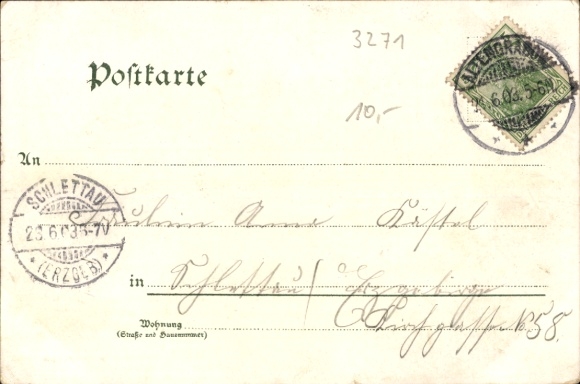 3271
Postkarte
10,-
ALTENGRABOW
6.03.5-6N
An
SCHLETTAU
23.6.03 6-7V
* (ERZGEB) *
Fräulein Anna Kästel
in Schlettau / Erzgebirge
Wohnung
(Straße und Hausnummer)
Kirchgasse N 58.